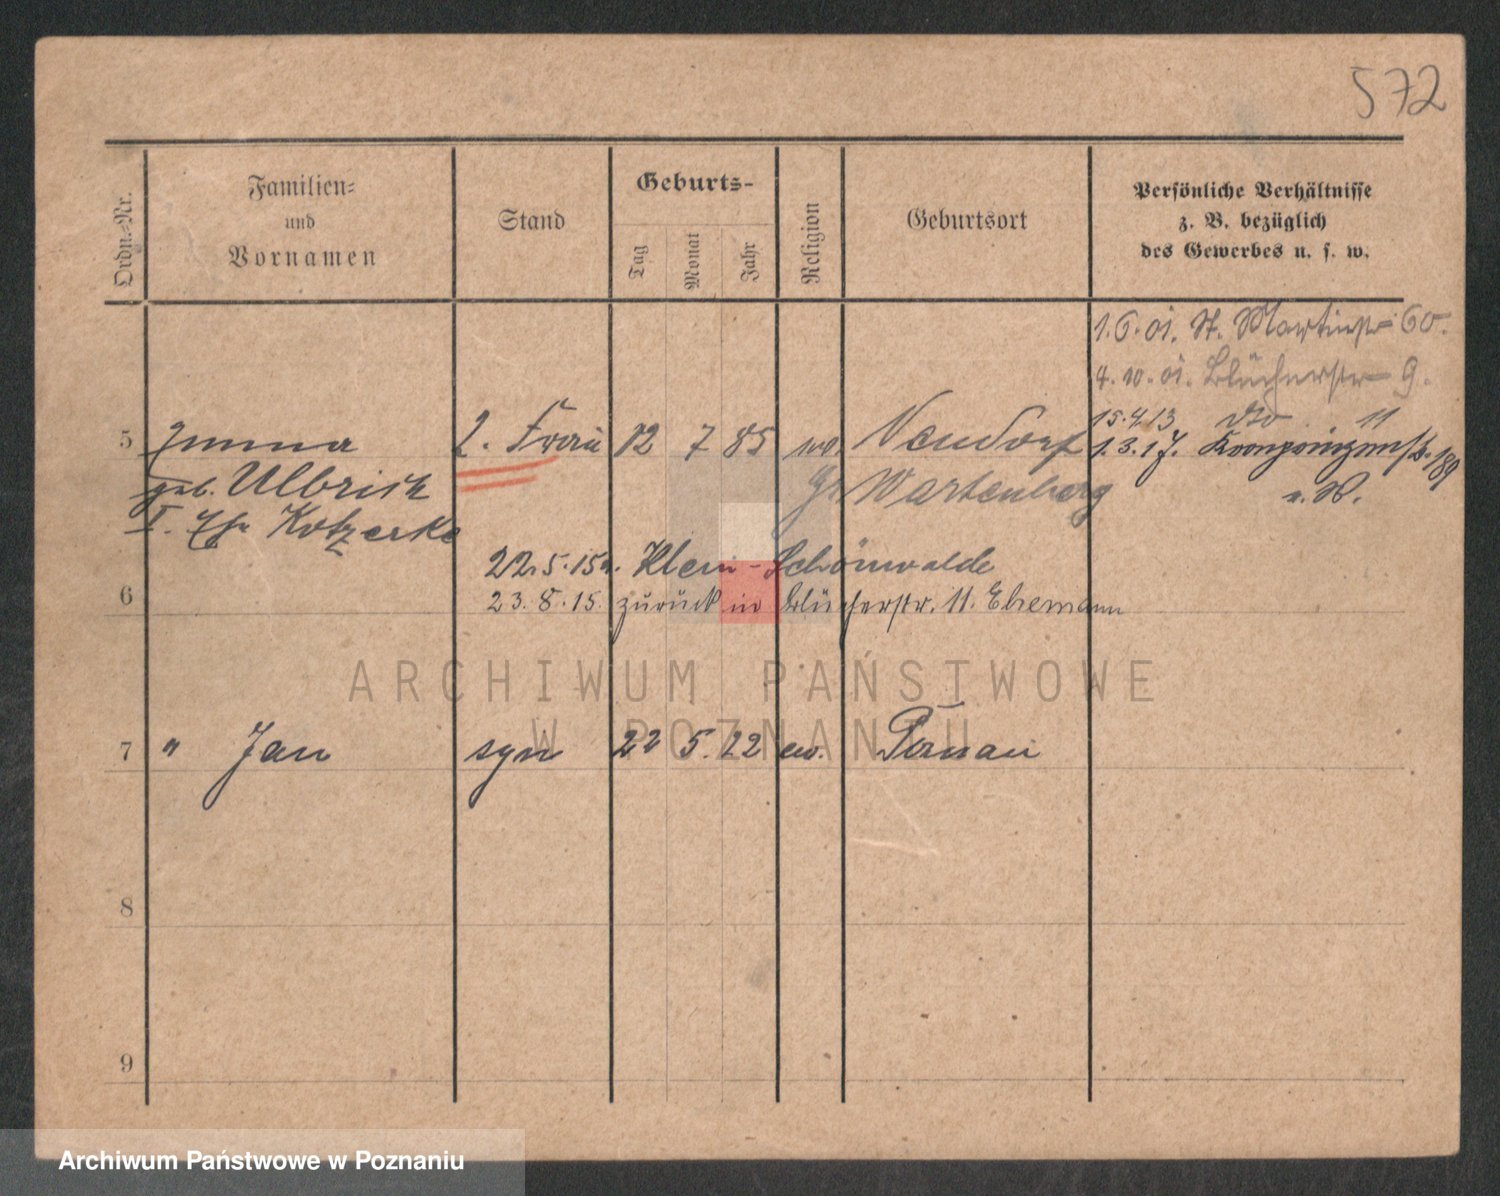 572
Ordn.-Nr.
Familien-
und
Vornamen
Stand
Geburts-
Tag
Monat
Jahr
Religion
Geburtsort
Persönliche Verhältnisse
z. B. bezüglich
des Gewerbes u. s. w.
1.6.01. St. Martinstr 60.
4.10.01. Blücherstr 9.
15.4.13 dto 11
5 Emma 2. Frau 12 7 85 ev. Neudorf 1.3.17. Kronprinzenstr. 189
geb. Ulbrich Gr. Wartenberg
I. Ehe Kotzerke
22.5.15 n. Klein-Schönwalde
6 23.8.15. zurück in Blücherstr. 11. Ehemann
7 " Jan syn 22 5. 22 ew. Poznań
8
9
ARCHIWUM PAŃSTWOWE
W POZNANIU
Archiwum Państwowe w Poznaniu